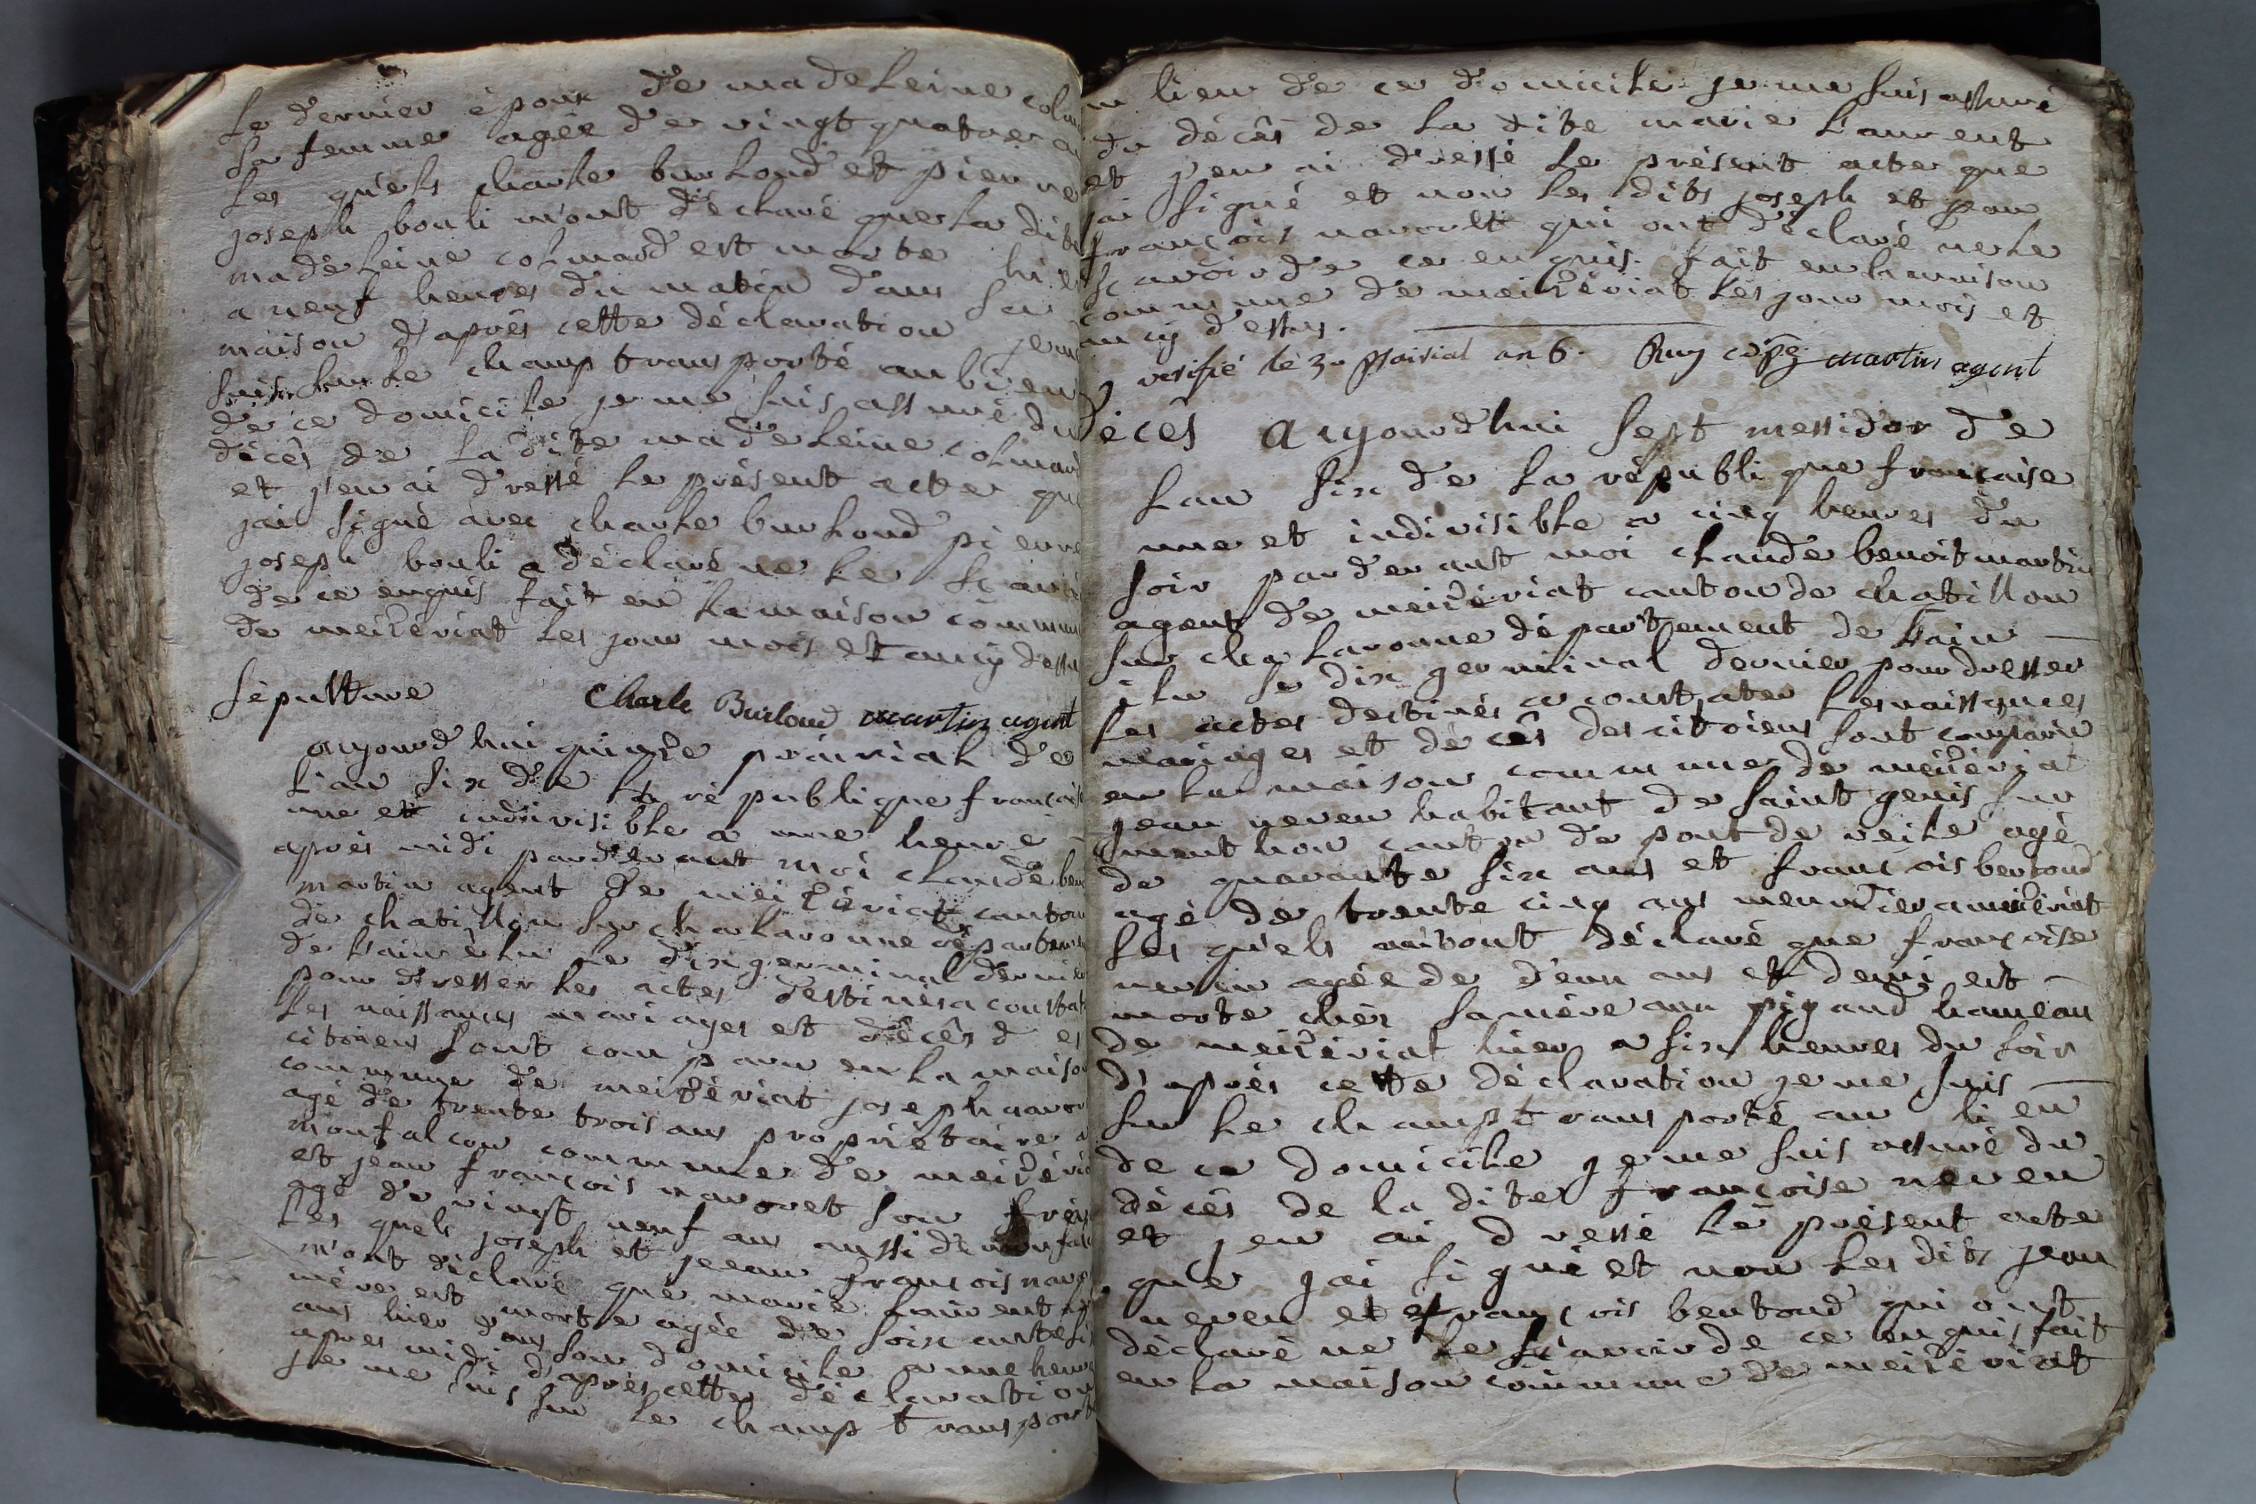 Le dernier époux de madeleine colm
sa femme agée de vingt quatre an
Les quels charle burloud et pierre
joseph bouli m'ont déclaré que la dite
madeleine colmard est morte hier
a neuf heures du matin dans sa
maison d'après cette déclaration je me
suis sur le champ transporté au lieu
de ce domicile je me suis assuré du
décês de la dite madeleine colmard
et j'en ai dressé le présent acte que
jai signé avec charle burloud pierre
joseph bouli a déclaré ne le sçavoi
de ce enquis fait en la maison commun
de meizériat les jour mois et an cy dessu
Charle Burloud martin agent
sépulture
aujourd'hui quinze prairial de
l'an six de la république française
une et indivisible a une heure
après midi pardevant moi claude ben
martin agent de meizériat canton
de chatillon sur chalaronne départeme
de l'ain élu le dix germinal dernier
pour dresser les actes destinés a constat
les naissances mariages et décês d es
citoiens sont comparu en la maison
commune de meizériat joseph navor
agé de trente trois ans propriétaire a
monfalcon commune de meizéria
et jean françois navoret son frère
agé de vingt neuf ans aussi de monfal
les quels joseph et jeean françois navo
m'ont déclaré que marie laurent
mère est morte agée de soixante si
ans hier dans son domicile a une heure
après midi d'après cette déclaration
je me suis sur le champ transporté
au lieu de ce domicile je me suis assuré
du décês de la dite marie laurent
et j'en ai dressé le présent acte que
jai signé et non les dits joseph et jean
françois navorett qui ont déclaré ne le
sçavoir de ce enquis. fait en la maison
commune de meizériat les jour mois et
an cy dessus.
vérifié le 30 prairial an 6. martin agent
Décês aujourd'hui sept messidor de
Lan six de la république française
une et indivisible a cinq heures du
soir pardevant moi claude benoit martin
agent de meizériat canton de chatillon
sur chalaronne département de l'ain
élu le dix germinal dernier pour dresser
les actes destinés a constater les naissances
mariages et décês des citoiens sont comparu
en la maison commune de meizériat
jean neveu habitant de saint genis sur
menthon canton de pont de veile agé
de quarante six ans et françois bertoud
agé de trente cinq ans meunier a meizériat
les quels m'ont déclaré que françoise
neveu agée de deux ans et demi est
morte chés sa mère au pigaud hameau
de meizériat hier a six heures du soir
d'après cette déclaration je me suis
sur le champ transporté au lieu
de ce domicile je me suis assuré du
décês de la dite françoise neveu
et jen ai dressé le présent acte
que jai signé et non les dits jean
neveu et françois bertoud qui ont
déclaré ne le sçavoir de ce enquis fait
en la maison commune de meizériat